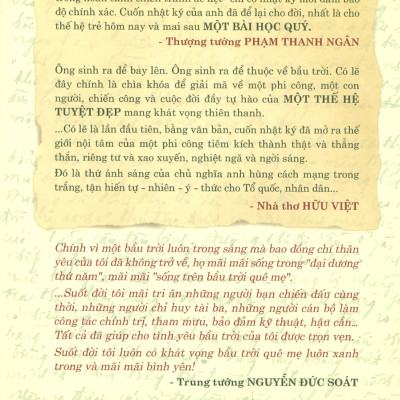 độ chính xác. Cuốn nhật ký của anh đã để lại cho đời, nhất là cho
thế hệ trẻ hôm nay và mai sau MỘT BÀI HỌC QUÝ.
- Thượng tướng PHẠM THANH NGÂN
Ông sinh ra để bay lên. Ông sinh ra để thuộc về bầu trời. Có lẽ
đây chính là chìa khóa để giải mã về một phi công, một con
người, chiến công và cuộc đời đầy tự hào của MỘT THẾ HỆ
TUYỆT ĐẸP mang khát vọng thiên thanh.
...Có lẽ là lần đầu tiên, bằng văn bản, cuốn nhật ký đã mở ra thế
giới nội tâm của một phi công tiêm kích thành thật và thẳng
thắn, riêng tư và xao xuyến, nghiệt ngã và ngời sáng.
Đó là thứ ánh sáng của chủ nghĩa anh hùng cách mạng trong
trắng, tận hiến tự - nhiên - ý - thức cho Tổ quốc, nhân dân...
- Nhà thơ HỮU VIỆT
Chính vì một bầu trời luôn trong sáng mà bao đồng chí thân
yêu của tôi đã không trở về, họ mãi mãi sống trong "đại dương
thứ năm", mãi mãi "sống trên bầu trời quê mẹ".
...Suốt đời tôi mãi tri ân những người bạn chiến đấu cùng
thời, những người chỉ huy tài ba, những người cán bộ làm
công tác chính trị, tham mưu, bảo đảm kỹ thuật, hậu cần...
Tất cả đã giúp cho tình yêu bầu trời của tôi được trọn vẹn.
Suốt đời tôi luôn có khát vọng bầu trời quê mẹ luôn xanh
trong và mãi mãi bình yên!
- Trung tướng NGUYỄN ĐỨC SOÁT